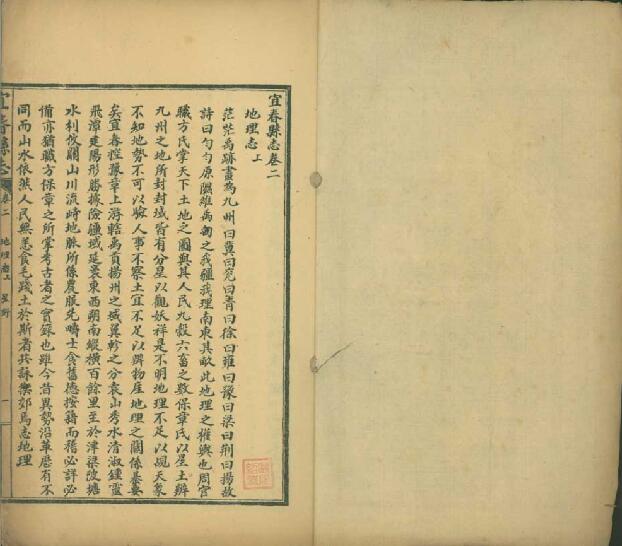 宜春縣志卷二
地理志上
茫茫禹跡畫為九州曰冀曰兗曰青曰徐曰雍曰豫曰梁曰荆曰揚故
詩曰勻勻原隰維禹甸之我疆我理南東其畝此地理之權輿也周官
職方氏掌天下土地之圖與其人民九穀六畜之數保章氏以星土辨
九州之地所封封域皆有分星以觀妖祥是不明地理不足以覘天象
不知地勢不可以驗人事不察土宜不足以辨物產地理之關係綦要
矣宜春控豫章上游轄禹貢揚州之域翼軫之分袁山秀水清淑鍾靈
飛漳建陽形勝據險疆域延袤東西朔南縱橫百餘里至於津梁陂塘
水利攸關山川流峙地脈所係農服先疇士食舊德按籍而稽必詳必
備亦猶職方保章之所掌考古者之實錄也雖今昔異勢沿革歷有不
同而山水依然人民無恙食毛踐土於斯者共詠樂郊焉志地理
宜春縣志
卷二
地理志上
星野
一